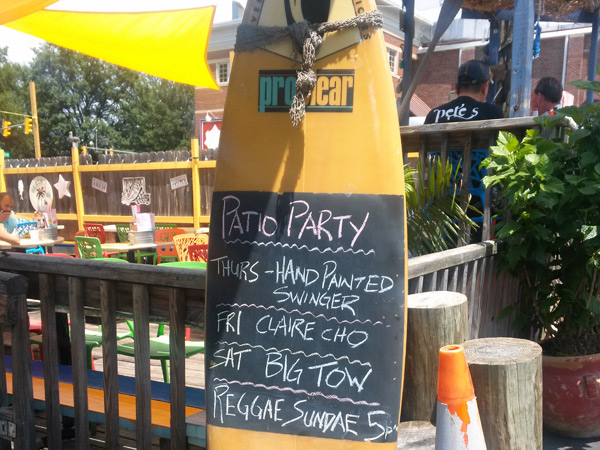 progear
PATIO PARTY
THURS - HAND PAINTED
SWINGER
FRI CLAIRE CHO
SAT BIG TOW
REGGAE SUNDAE 5pm
pete's